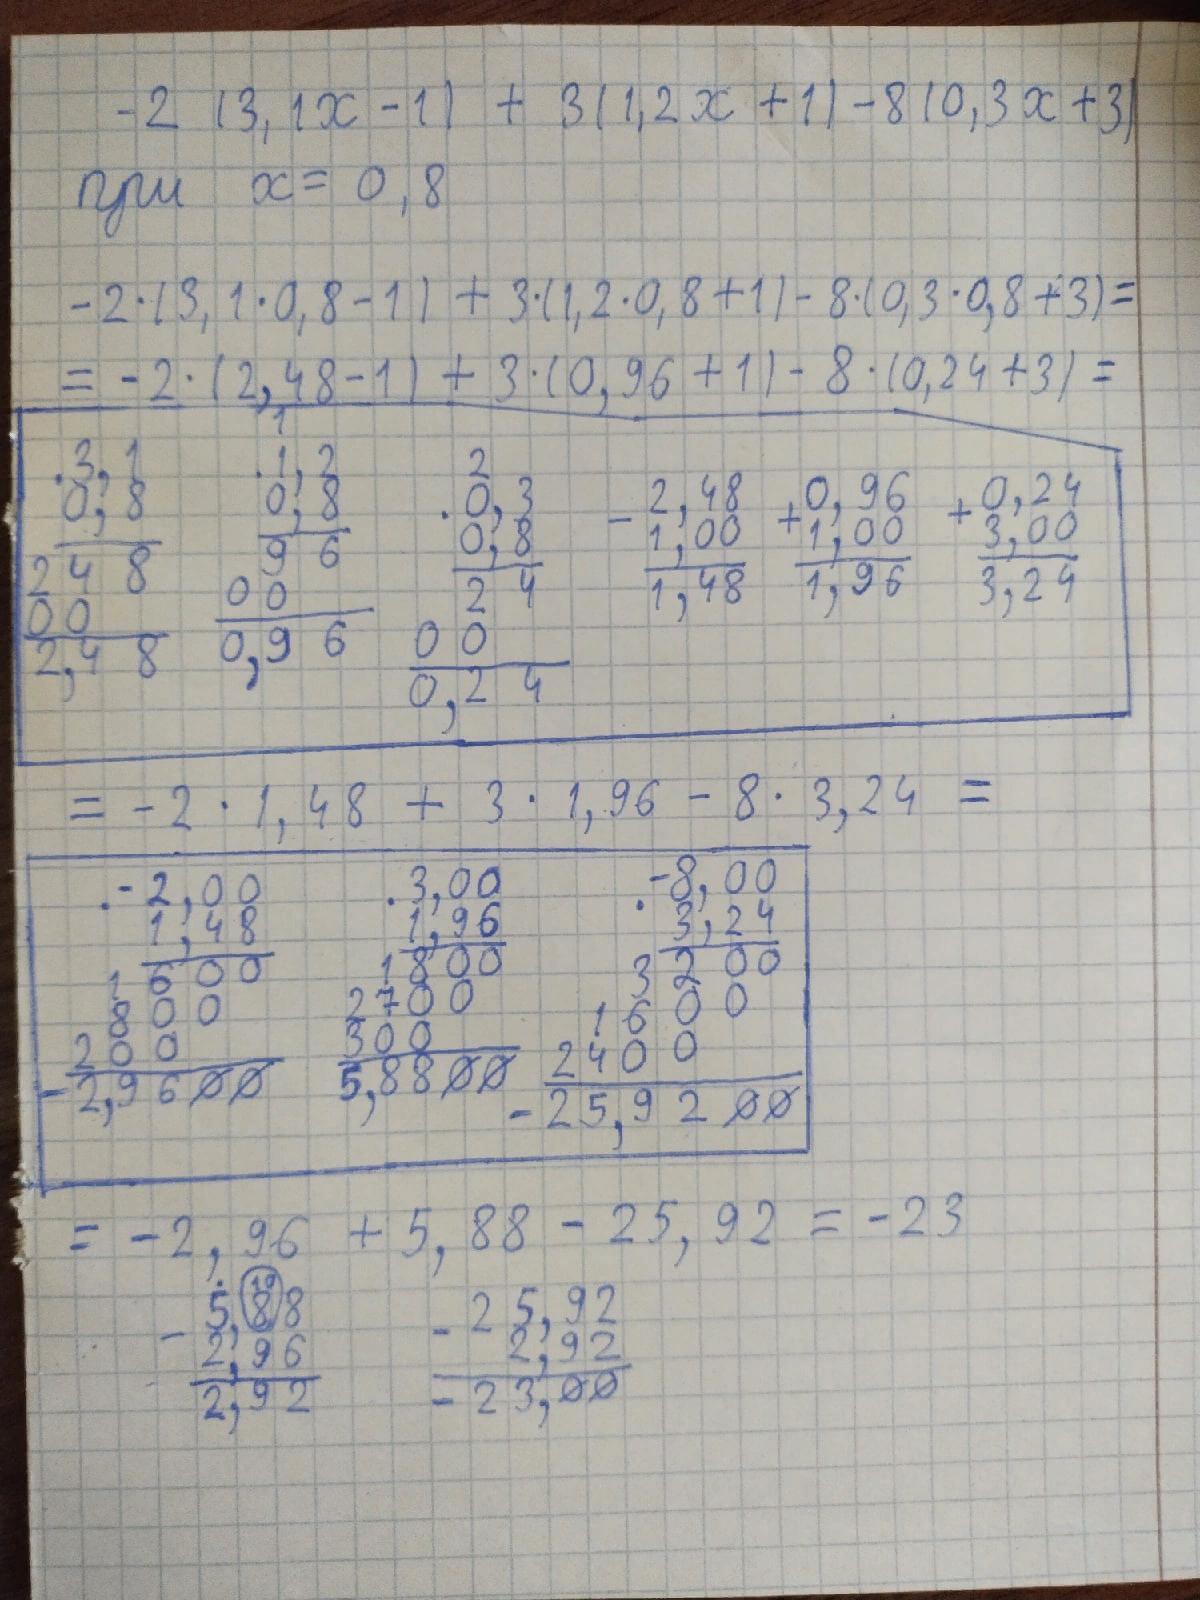 -2 (3,1x-1) + 3(1,2x+1)-8(0,3x+3)
при x= 0,8
-2·(3,1·0,8-1) + 3·(1,2·0,8+1)-8·(0,3·0,8+3)=
= -2·(2,48-1) + 3·(0,96+1)- 8·(0,24+3) =
1
.3,1 .1,2 2
0,8 0,8 .0,3 - 2,48 +0,96 +0,24
248 96 0,8 1,00 1,00 3,00
00 00 24 1,48 1,96 3,24
2,48 0,96 00
0,24
= -2·1,48 + 3·1,96-8·3,24 =
.-2,00 .3,00 .-8,00
1,48 1,96 3,24
1600 1800 3200
800 2700 1600
200 300 2400
-2,9600 5,8800 -25,9200
= -2,96 +5,88-25,92=-23
10
- 5,88 -25,92
2,96 2,92
2,92 -23,00